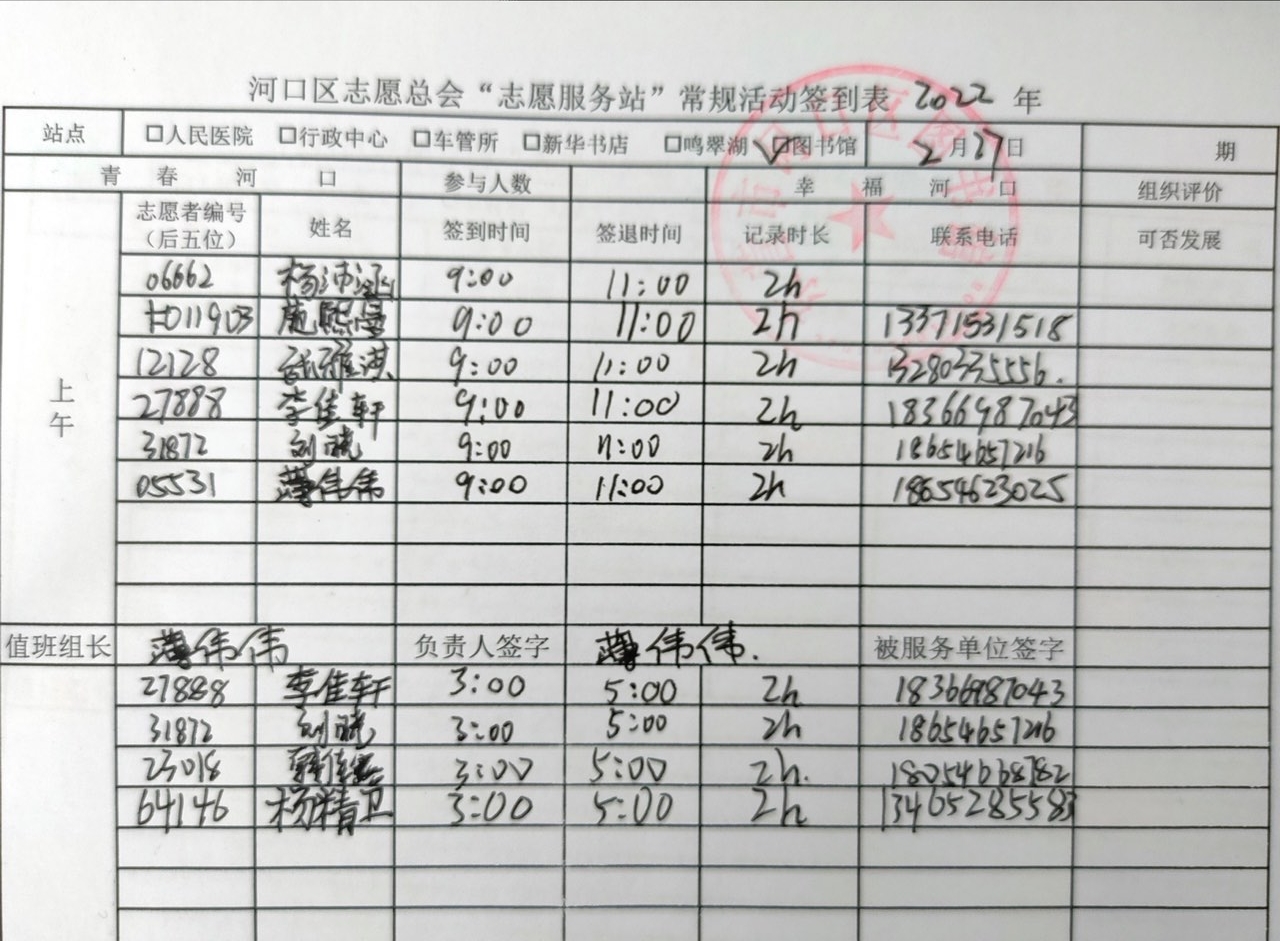 河口区志愿总会“志愿服务站”常规活动签到表 2022 年
站点 □人民医院 □行政中心 □车管所 □新华书店 □鸣翠湖 ☑图书馆 2月27日 期
青春河口 参与人数 幸福河口 组织评价
志愿者编号（后五位） 姓名 签到时间 签退时间 记录时长 联系电话 可否发展
上午
06662 杨沛涵 9:00 11:00 2h
9:00 11:00 2h 13371531518
12128 9:00 11:00 2h
27888 李佳轩 9:00 11:00 2h 18366987043
31872 刘晓 9:00 11:00 2h 18654657216
05531 薄伟伟 9:00 11:00 2h 18654623025
值班组长 薄伟伟 负责人签字 薄伟伟. 被服务单位签字
27888 李佳轩 3:00 5:00 2h 18366987043
31872 刘晓 3:00 5:00 2h 18654657216
23018 3:00 5:00 2h.
64146 杨精卫 3:00 5:00 2h 13465285583